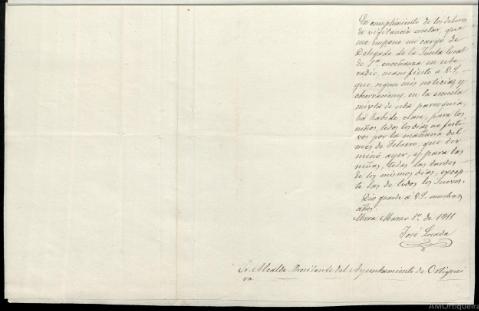 En cumplimiento de los deberes
de vigilancia escolar, que
me impone mi cargo de
Delegado de la Junta local
de 1ª enseñanza en esta
radio, manifiesto a V.S.
que, segun mis noticias y
observaciones, en la escuela
mixta de esta parroquia,
ha habido clase, para los
niños, todos los dias no festi-
vos por la mañana del
mes de Febrero, que ter-
minó ayer, y para las
niñas, todas las tardes
de los mismos dias, excep-
to las de todos los Jueves.
Dios guarde a V.S. muchos
años
Mera Marzo 1º de 1911
José
Sr. Alcalde Presidente del Ayuntamiento de Ortiguei-
ra